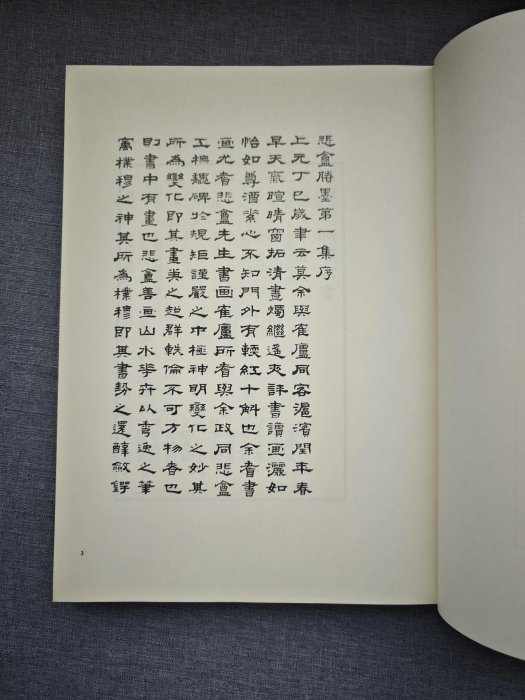 悲盦勝墨第一集序
上元丁巳歲聿云莫余與崔廬同客滬濱閏年春
早天氣暄晴窗拓清晝燭繼遙夜評書讀画灑如
怡如尊酒縈心不知門外有輭紅十斛也余耆書
画尤耆悲盦先生書画崔廬所耆與余政同悲盦
工橅魏碑於規矩謹嚴之中極神明變化之妙其
所為變化即其畫美之超群軼倫不可方物者也
則書中有畫也悲盦善画山水華卉以寫逸之筆
寓樸穆之神其所為樸穆即其書勢之還醇斂鍔
3